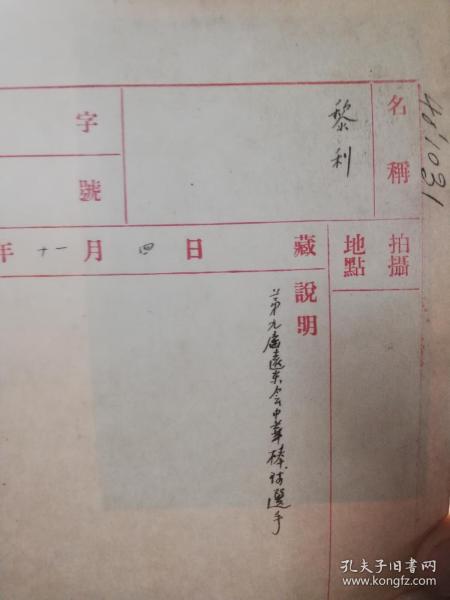 481031
名稱
黎利
字號
拍攝地點
年十一月四日
藏
說明
第九屆遠東會中華棒球選手
孔夫子旧书网
www.kongfz.com